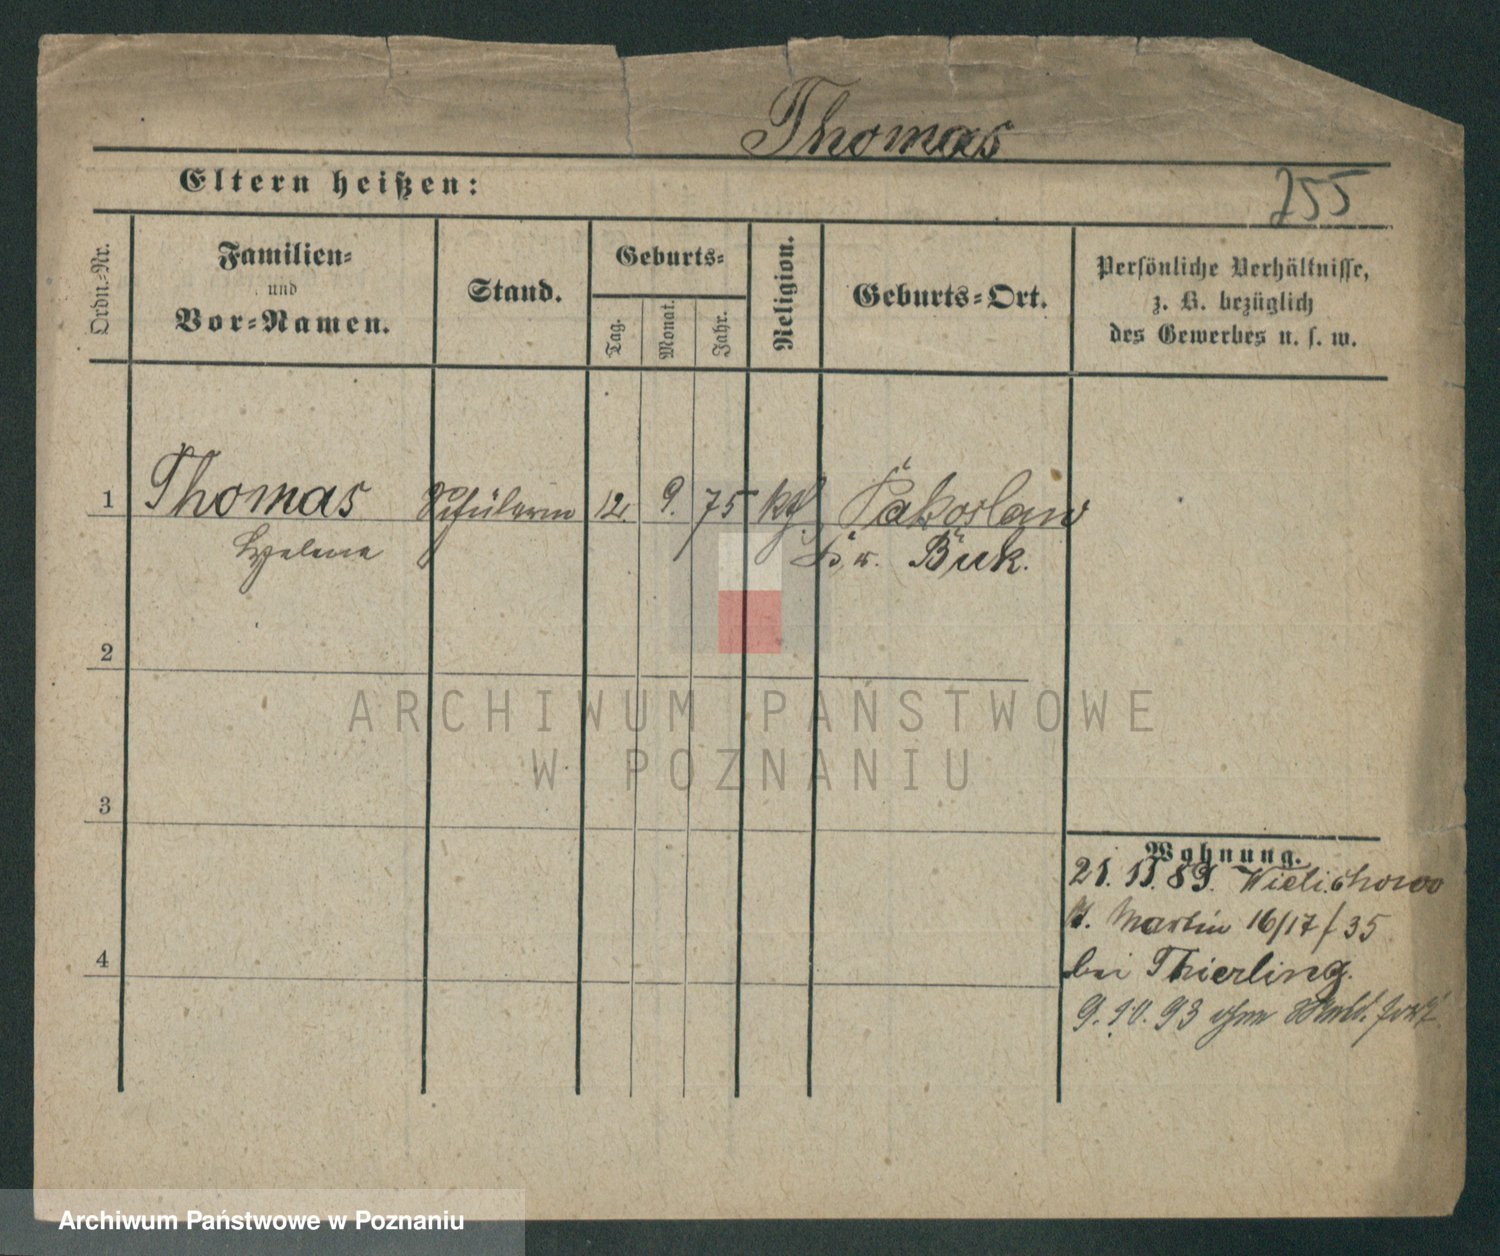 Thomas
Eltern heißen:
255
Ordn.-Nr.
Familien-
und
Vor-Namen.
Stand.
Geburts-
Tag.
Monat.
Jahr.
Religion.
Geburts-Ort.
Persönliche Verhältnisse,
z. B. bezüglich
des Gewerbes u. s. w.
1 Thomas Schülerin 12. 9. 75 kath. Pakoslaw
Helene Kr. Buk.
2
3
4
Wohnung.
21. 11. 89. Wielichowo
St. Martin 16/17 / 35
bei Thierling.
9. 10. 93 ohne Meld. fort.
ARCHIWUM PAŃSTWOWE
W POZNANIU
Archiwum Państwowe w Poznaniu